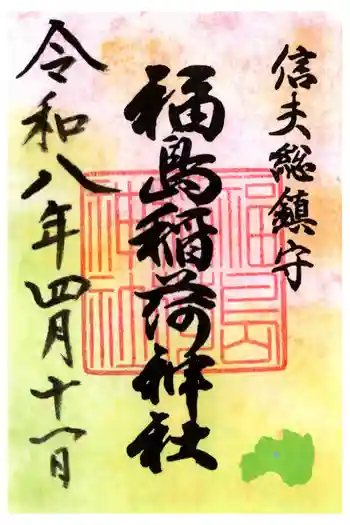 信夫総鎮守
福島稲荷神社
令和八年四月十一日